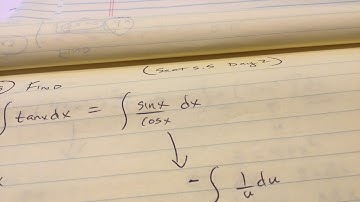 (Sect 5.5 Day 2)
Find
∫ tanx dx = ∫ sinx/cosx dx
- ∫ 1/u du